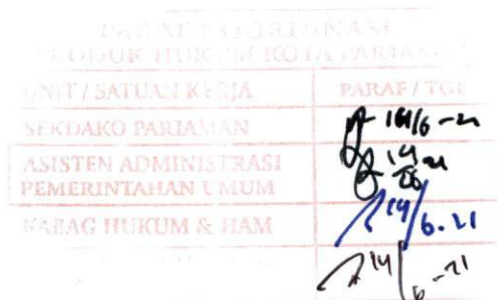 PARAF KOORDINASI
PRODUK HUKUM KOTA PARIAMAN
UNIT / SATUAN KERJA PARAF / TGL
SEKDAKO PARIAMAN 14/6-21
ASISTEN ADMINISTRASI
PEMERINTAHAN UMUM
KABAG HUKUM & HAM 14/6.21
14/6-21